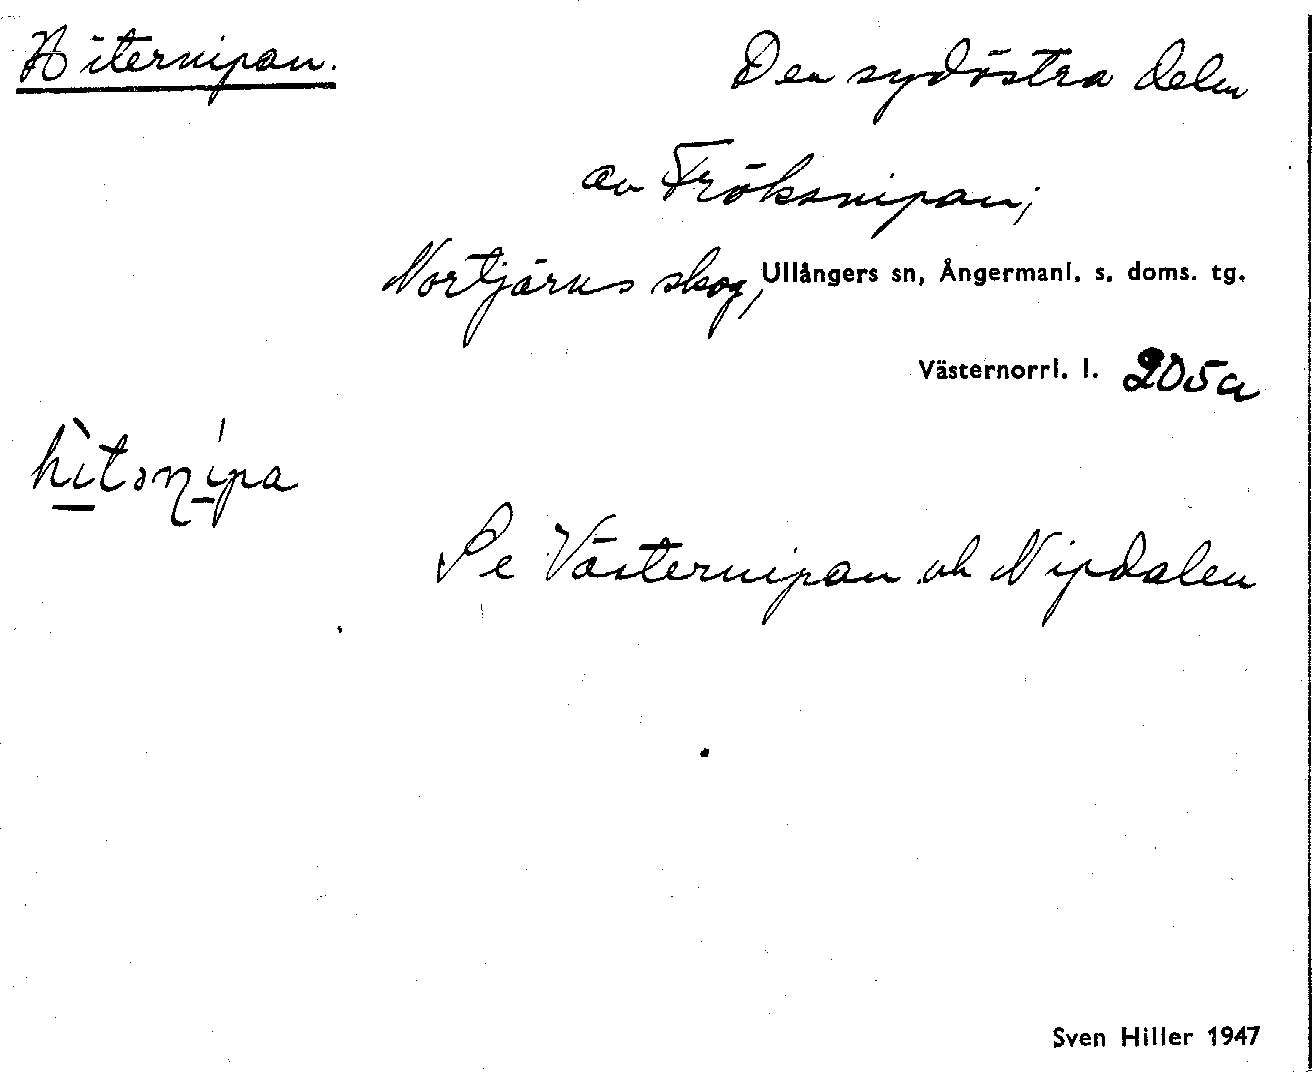 Hiternipan.
Den sydöstra delen
av Fröksnipan;
Nortjärns skog, Ullångers sn, Ångermanl. s. doms. tg.
Västernorrl. l. 205a
Se Västernipan och Nipdalen
Sven Hiller 1947